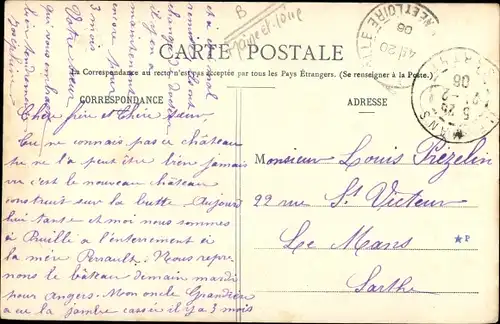 B
Maine et Loire
CARTE POSTALE
La Correspondance au recto n'est pas acceptée par tous les Pays Étrangers. (Se renseigner à la Poste.)
CORRESPONDANCE
ADRESSE
Cher frère et Chère sœur,
Tu ne connais pas ce château
tu ne l'a peut être bien jamais
vu c'est le nouveau château
construit sur la butte. Aujourd
hui tante et moi nous sommes
à Ruillé a l'enterrement de
la mère Perrault. Nous repre
nons le bâteau demain mardi
pour angers. Mon oncle Grandière
a eu la jambe cassée il y a 3 mois
Monsieur Louis Prézelin
22 rue St Victeur
Le Mans
Sarthe
maintenant
encore pour
3 mois
Votre sœur
qui vous embrasse
Joséphine